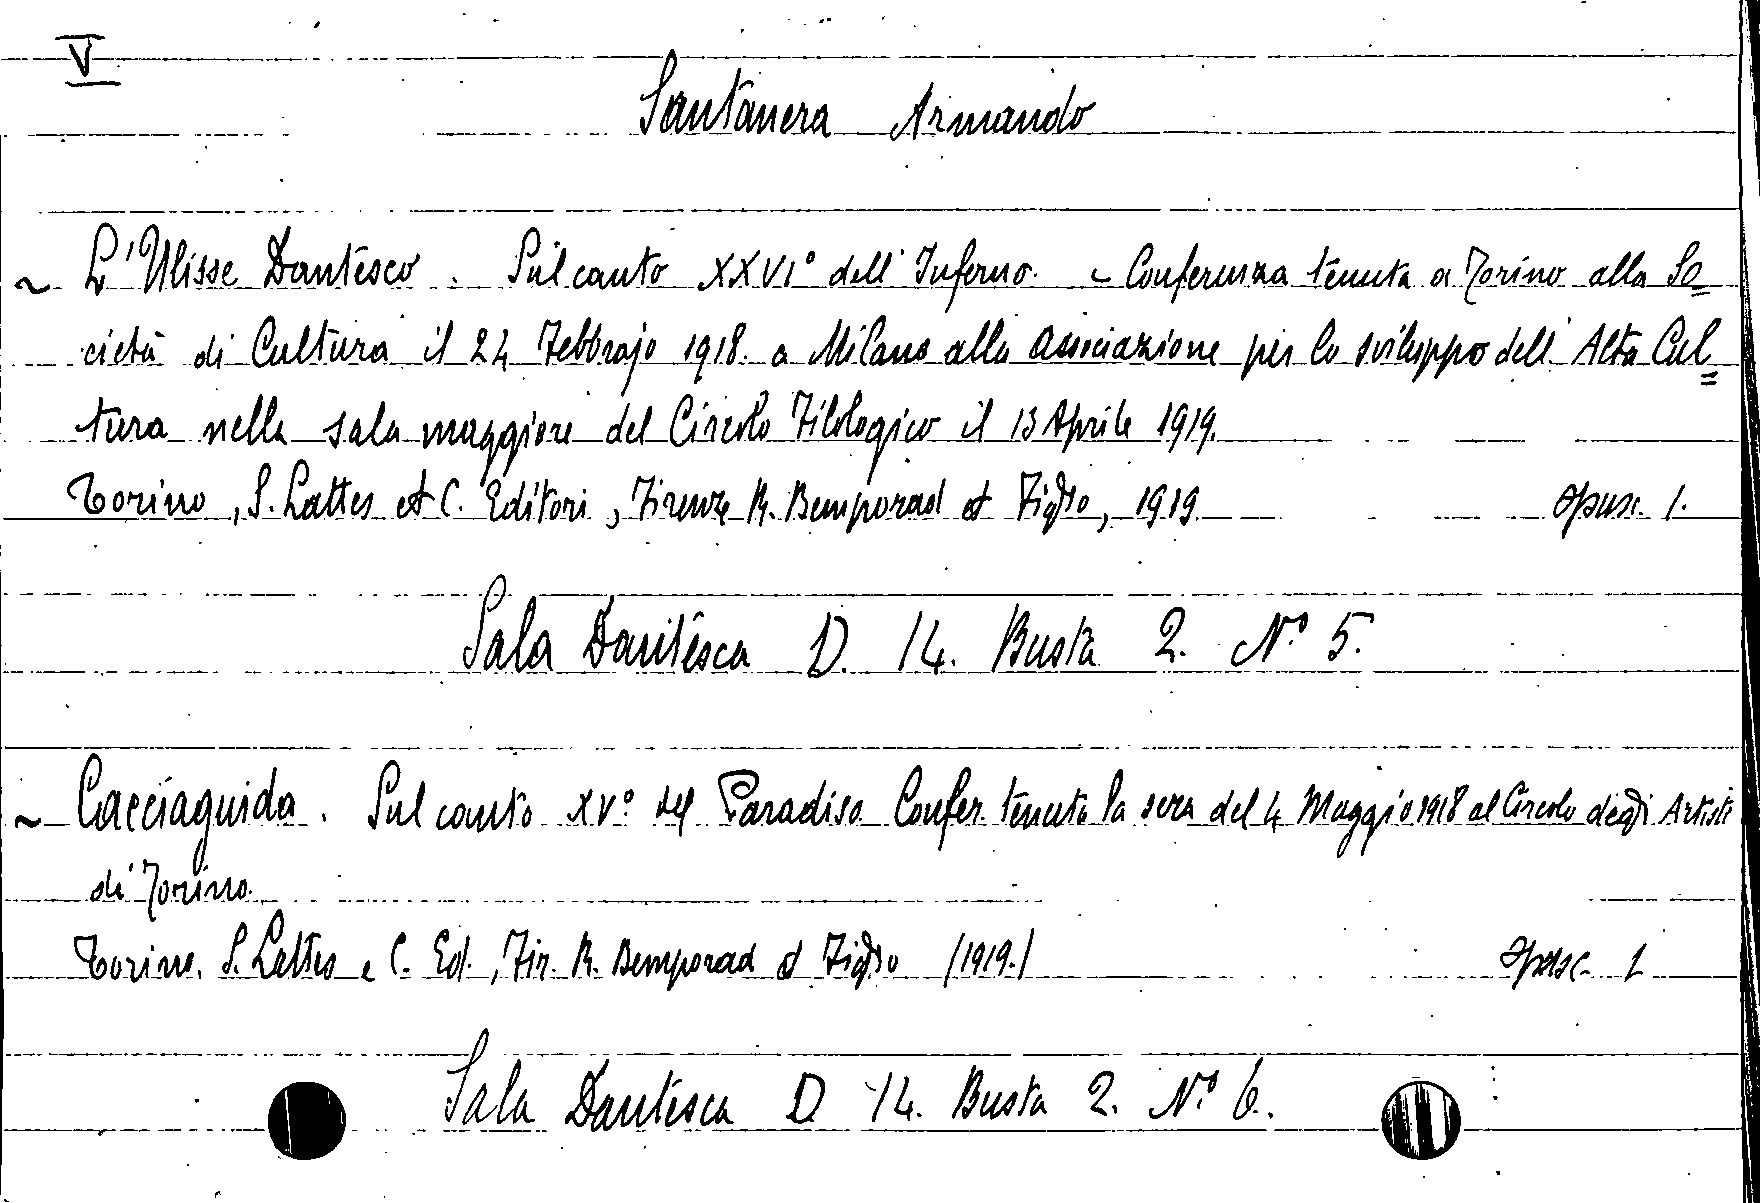 V
Santanera Armando
~ L'Ulisse Dantesco. Sul canto XXVI° dell'Inferno. - Conferenza tenuta a Torino alla So=
cietà di Cultura il 24 Febbrajo 1918. a Milano alla Associazione per lo sviluppo dell'Alta Cul=
tura nella sala maggiore del Circolo Filologico il 13 Aprile 1919.
Torino, S. Lattes et C. Editori, Firenze R. Bemporad et Figlio, 1919. opusc. 1.
Sala Dantesca D. 14. Busta 2. N.° 5.
~ Cacciaguida. Sul canto XV.° del Paradiso Confer. tenuta la sera del 4 Maggio 1918 al Circolo degli Artisti
di Torino.
Torino. S. Lattes e C. Ed., Fir. R. Bemporad et Figlio (1919.) opusc. 1
Sala Dantesca D 14. Busta 2. N.° 6.